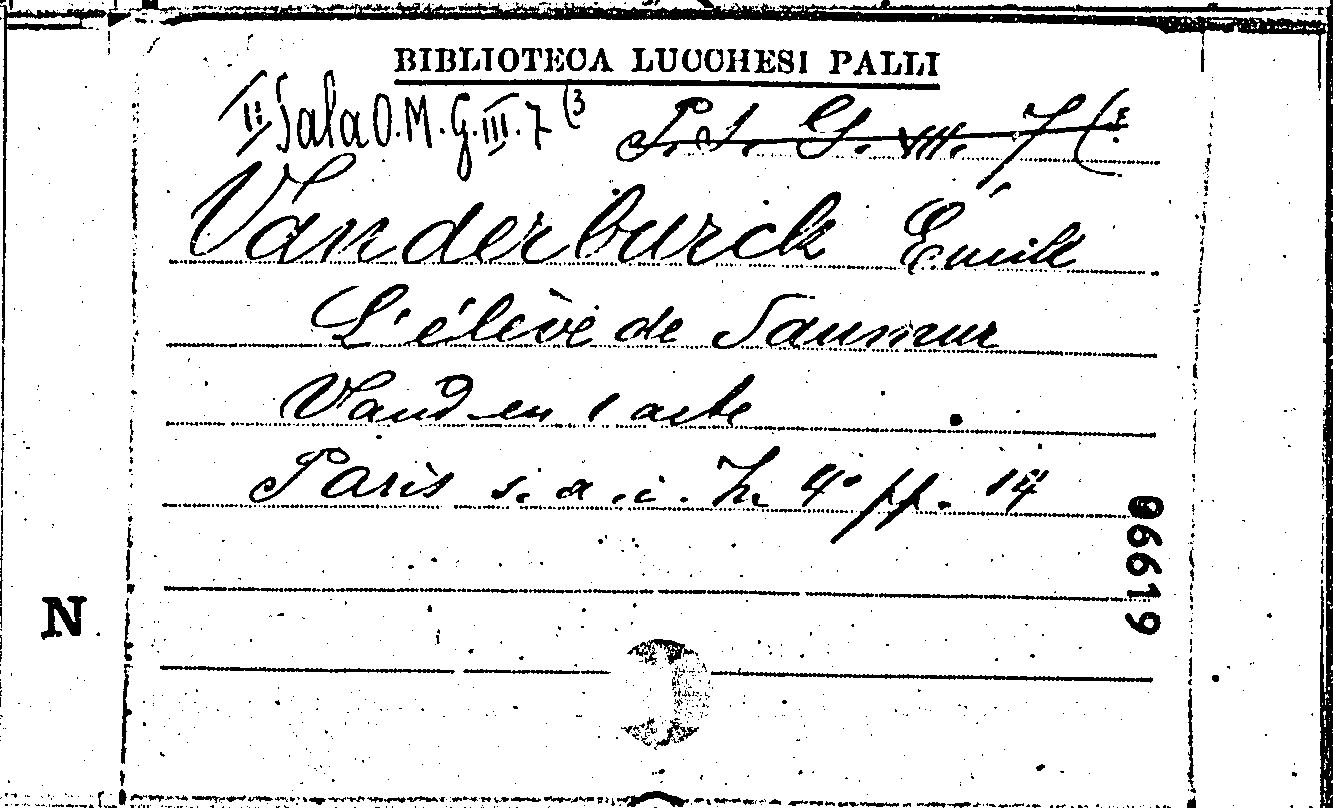 BIBLIOTECA LUCCHESI PALLI
II Sala O.M.G.III.7 (3
P.s. G. VIII. 7 (3
Vanderburck Émile
L'élève de Saumur
Vaud en 1 acte
Paris s. a. i. 4° pp. 14
06619
N